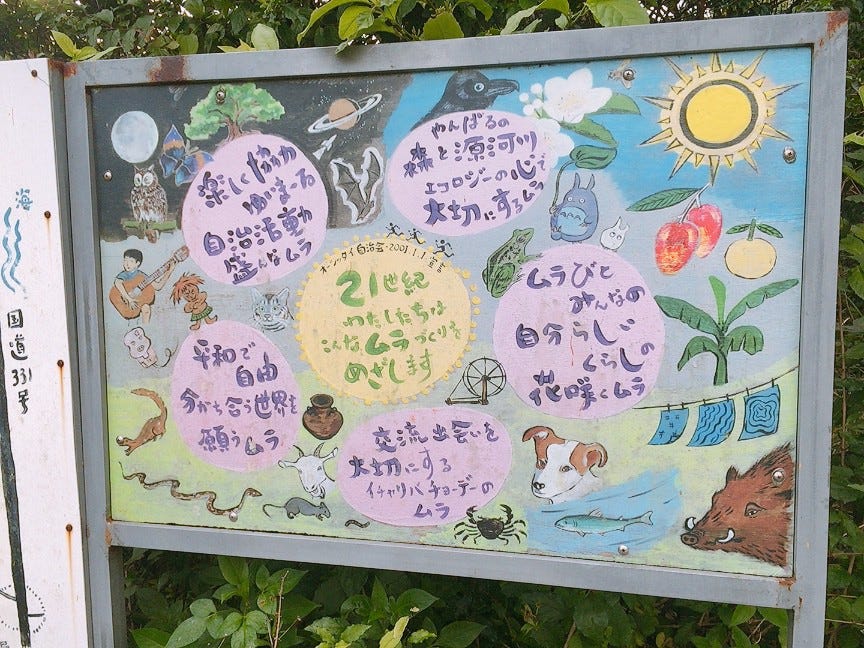 海
国道331号
楽しく協力
ゆいまーる
自治活動
盛んなムラ
やんばるの
森と源河川
エコロジーの心で
大切にするムラ
オーシッタイ自治会・2001.1.1宣言
21世紀
わたしたちは
こんなムラづくりを
めざします
ムラびと
みんなの
自分らしい
くらしの
花咲くムラ
平和で
自由
分かち合う世界を
願うムラ
交流出会いを
大切にする
イチャリバチョーデーの
ムラ